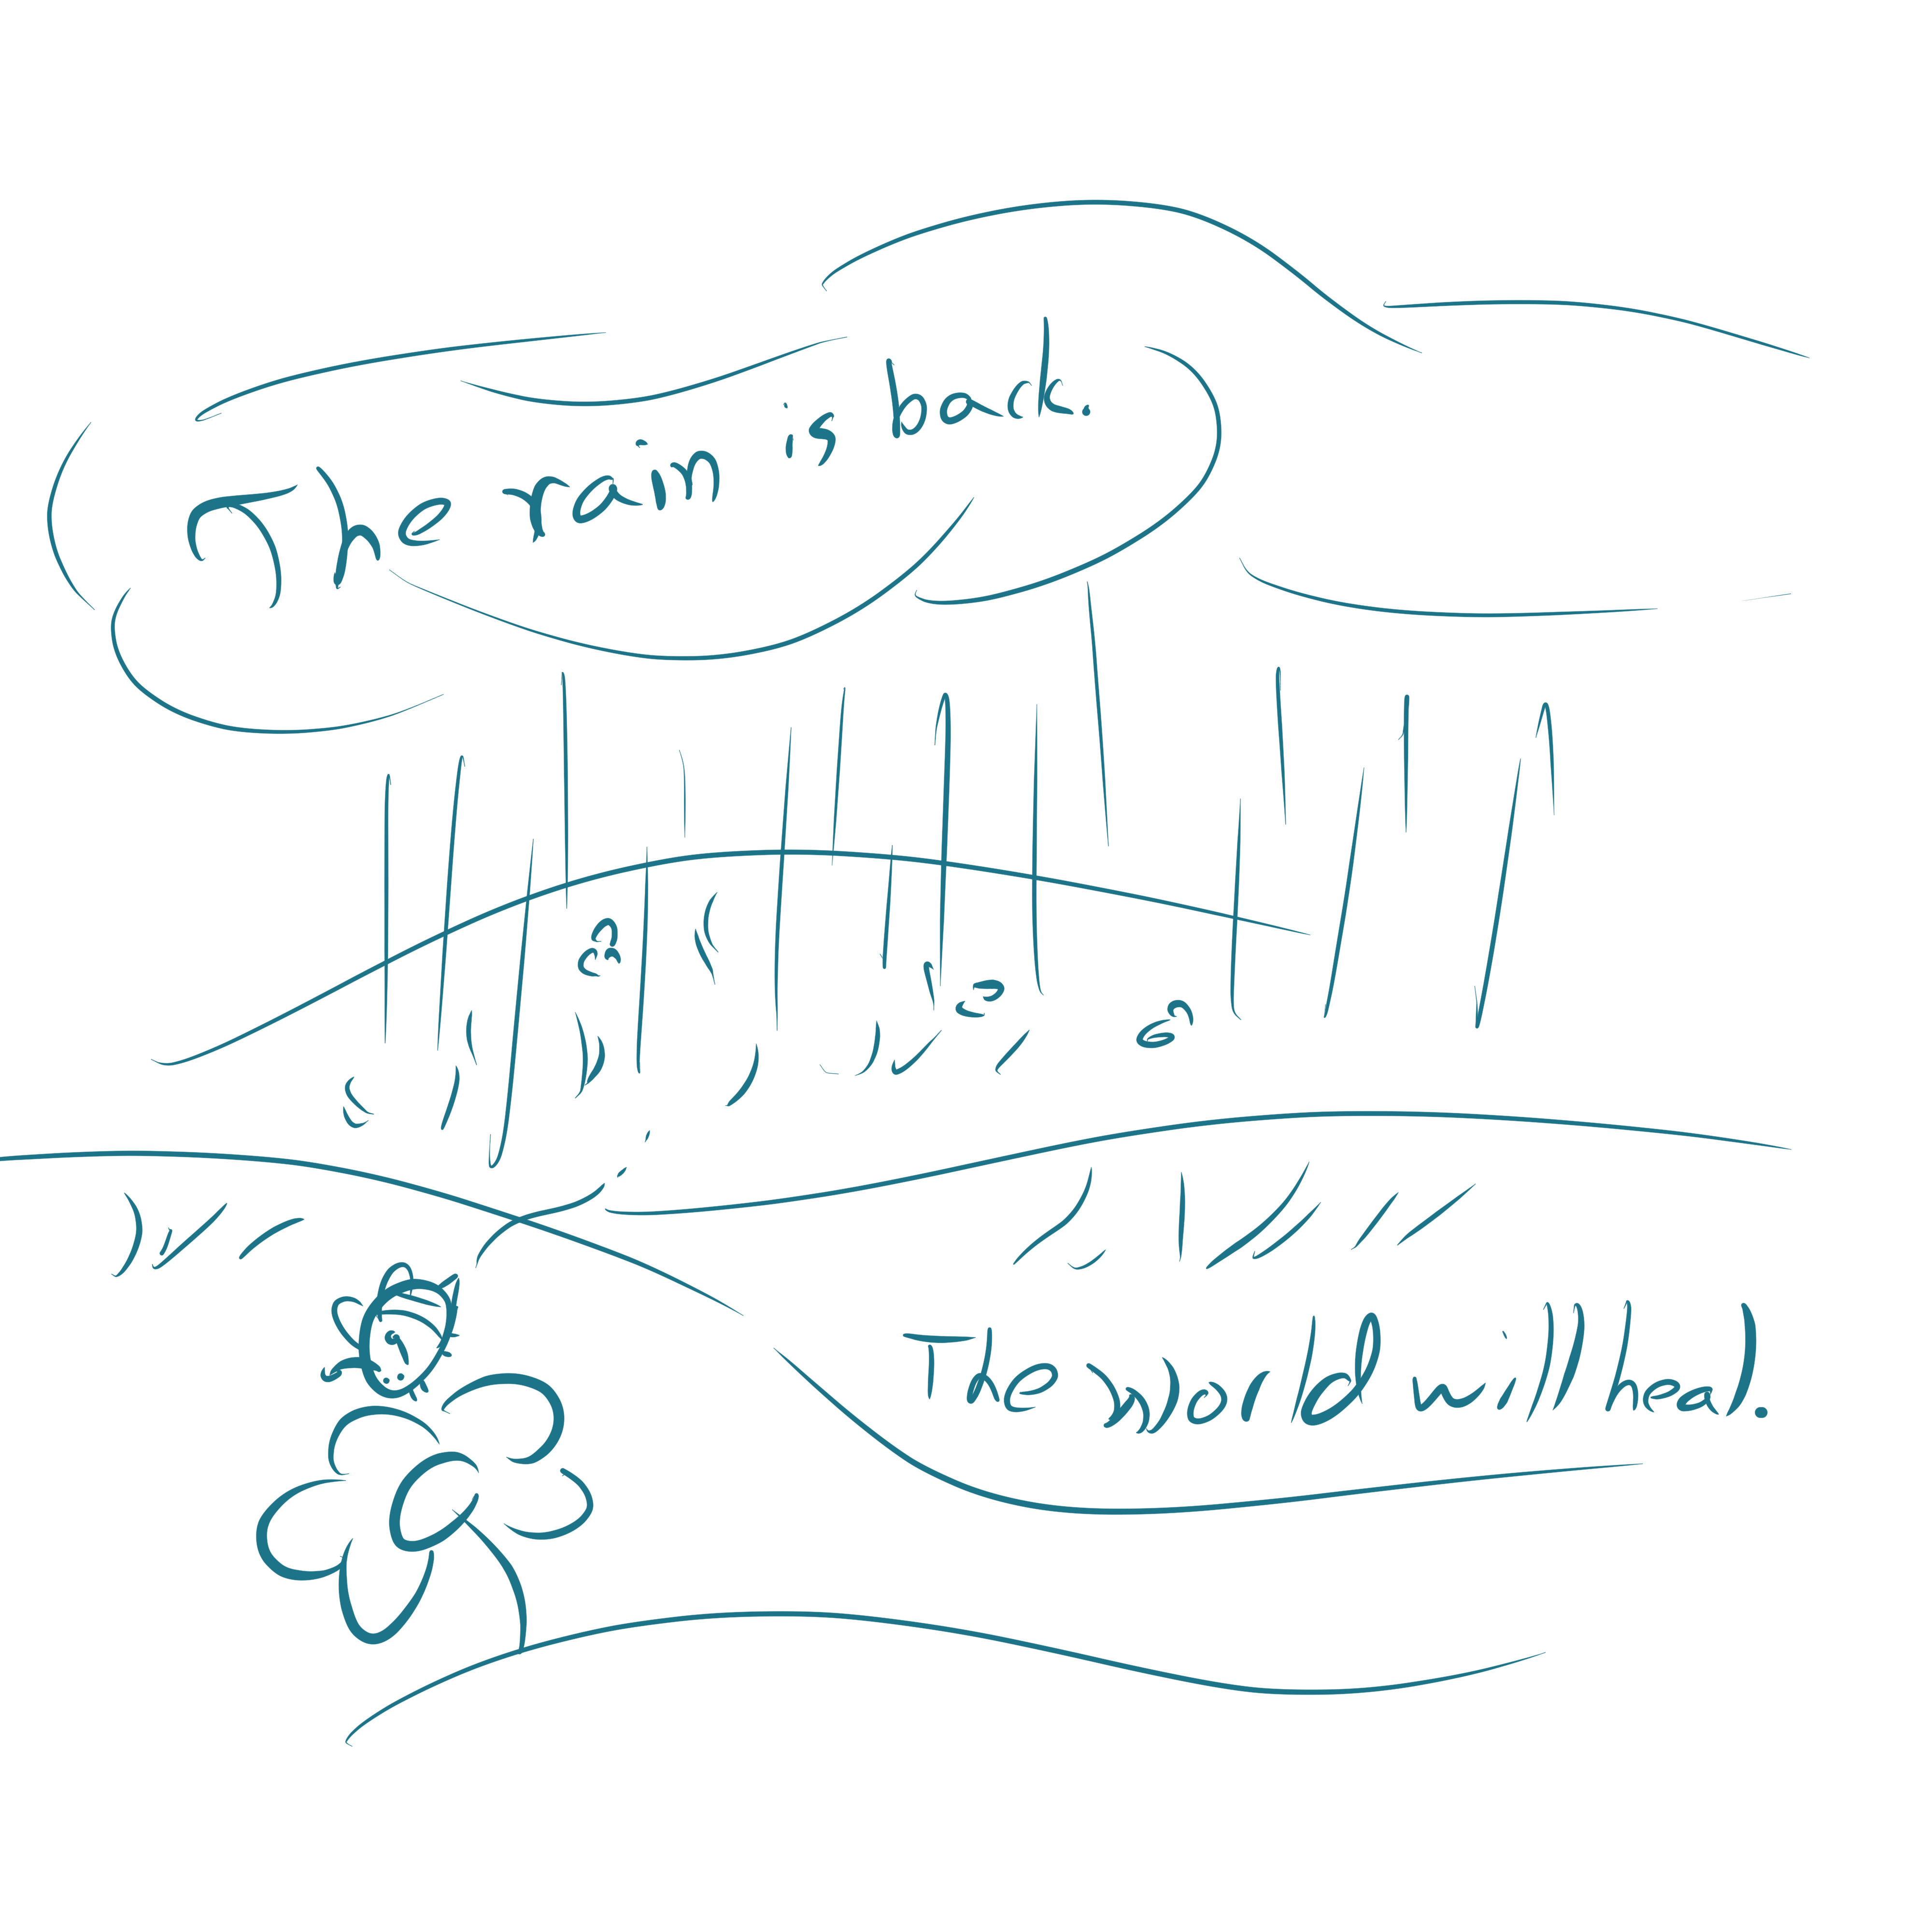 The rain is back.
The world will heal.